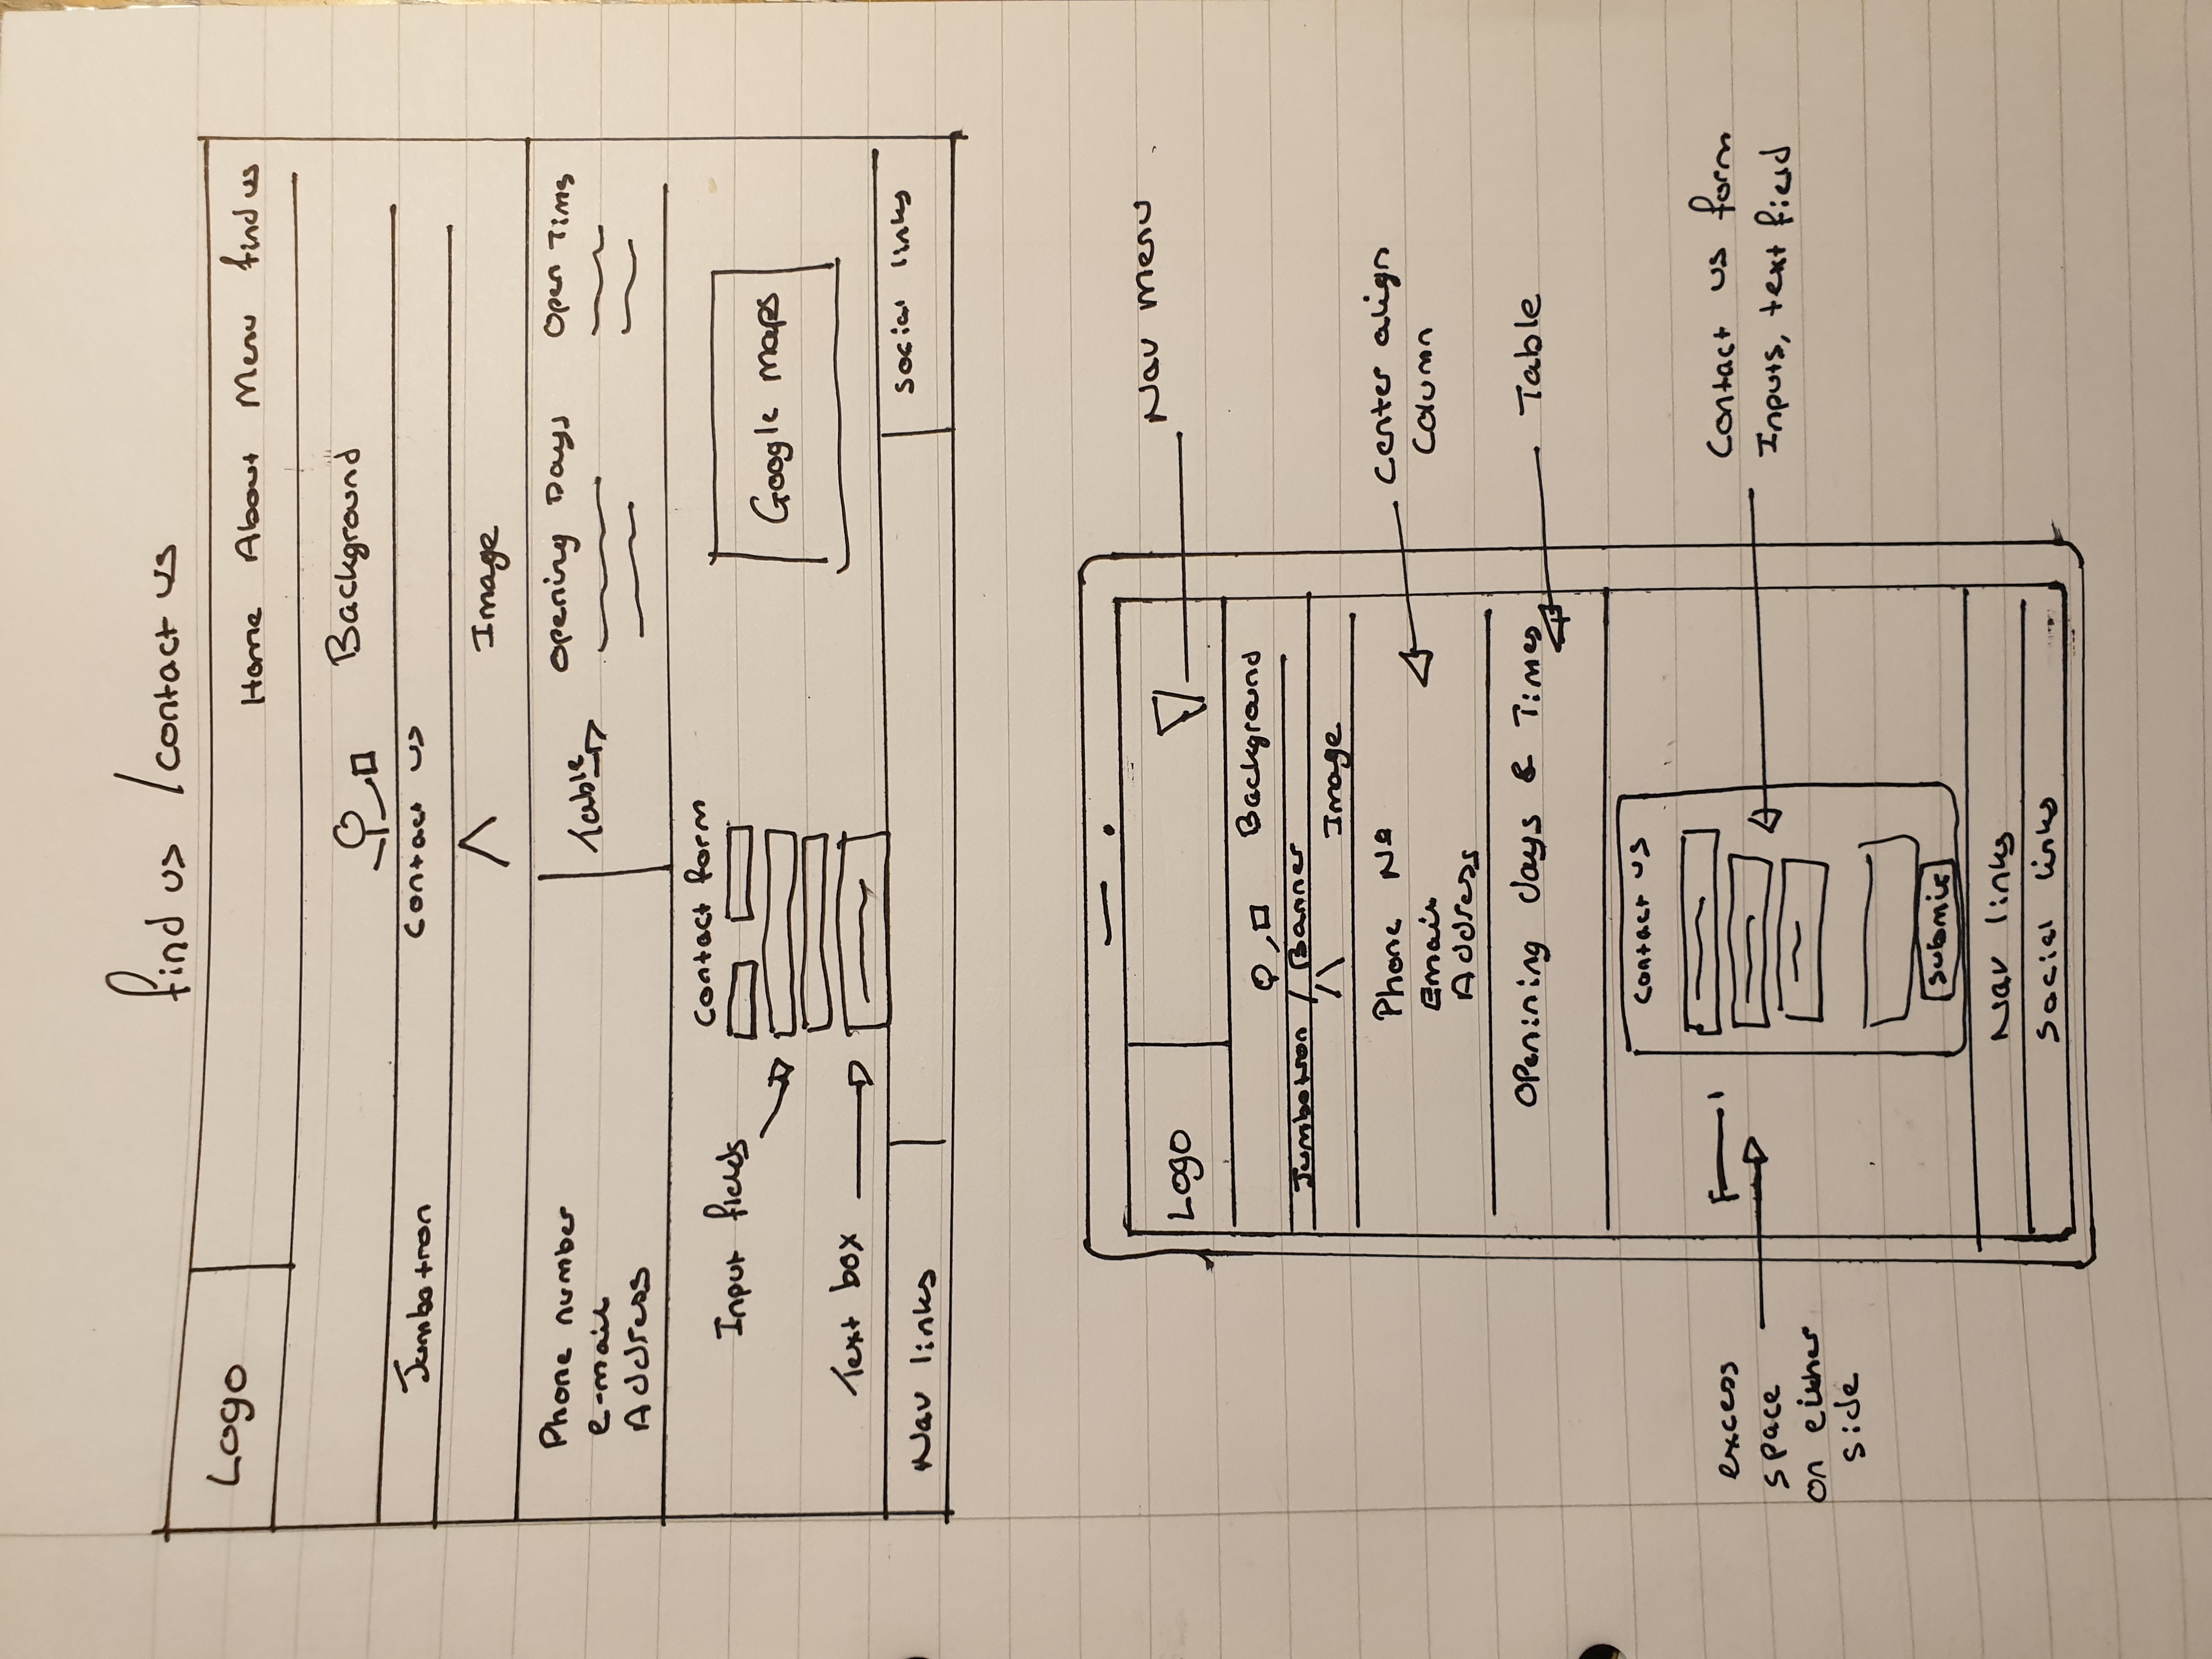 find us / contact us
Logo
Home About Menu find us
Background
Jumbotron Contact us
Image
Phone number
e-mail
Address
Table
Opening Days Open Time
Contact form
Input fields
Google maps
Text box
Nav links
Social links
Nav menu
Logo
Background
Jumbotron / Banner
Image
Phone No
Email
Address
Center align
Column
Openining days & Times
Table
Contact us
excess
space
on either
side
Contact us form
Inputs, text field
Submit
Nav links
Social links